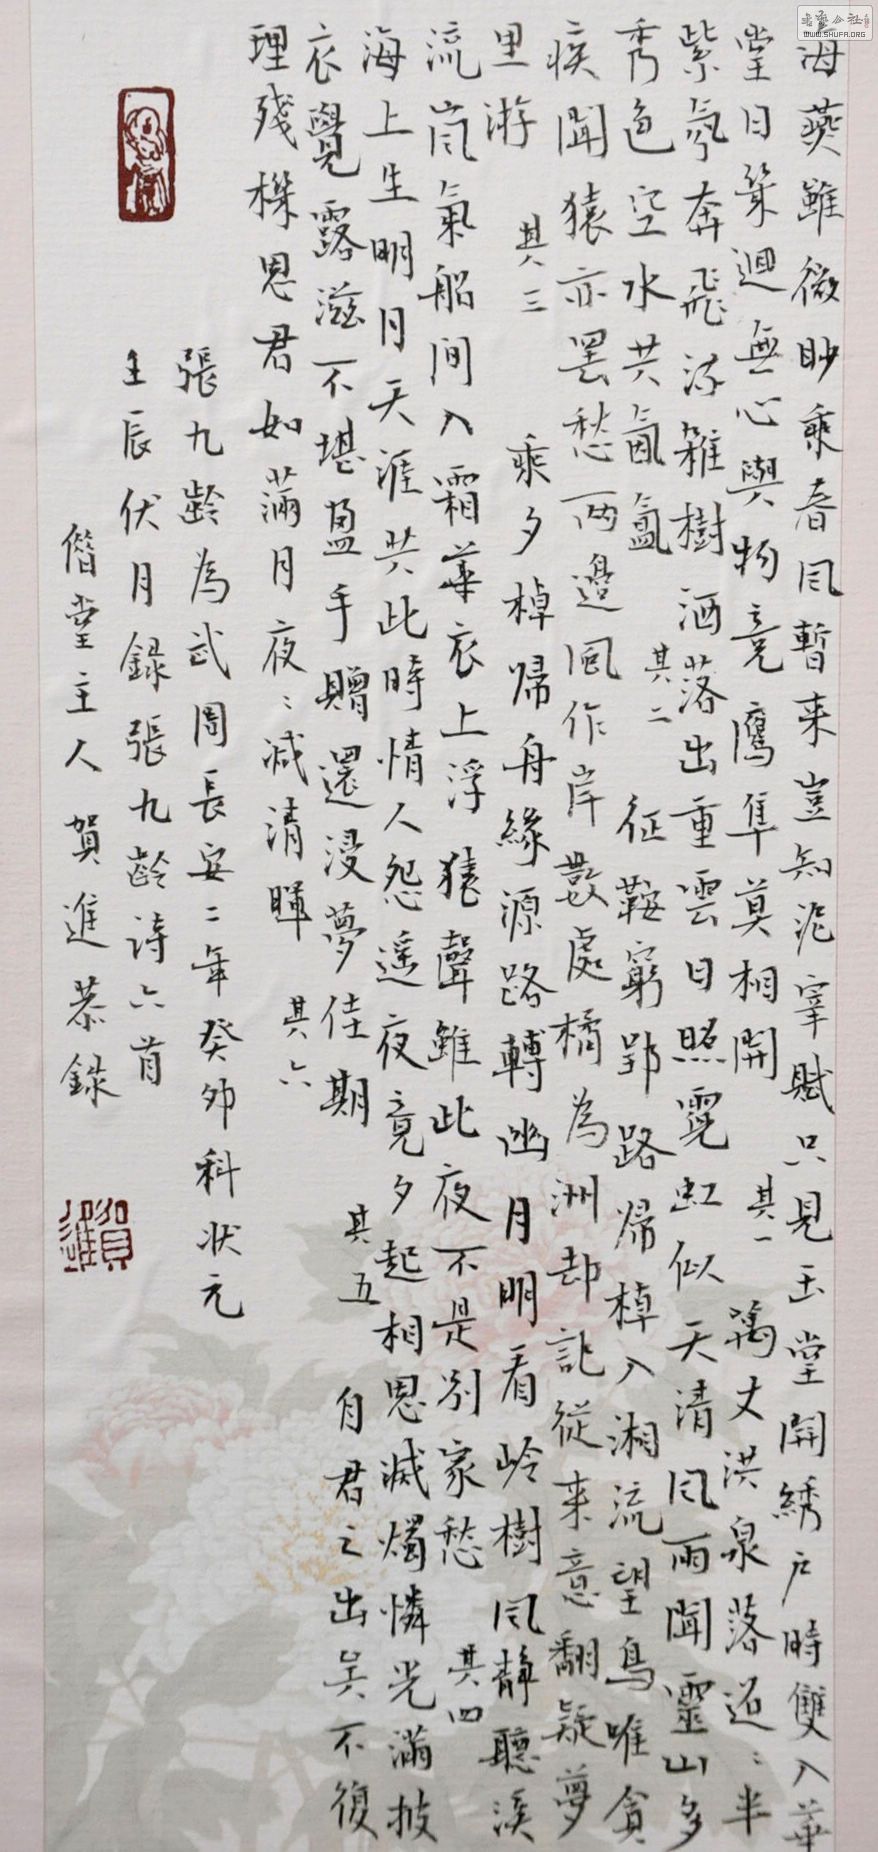 海燕雖微眇乘春風暫来豈知泥滓賤只見玉堂開綉户時雙入華
堂日幾迴無心與物競鷹隼莫相開 其一 萬丈洪泉落迢〻半
紫氛奔飛流雜樹洒落出重雲日照霓虹似天清風雨聞靈山多
秀色空水共氤氲 其二 征鞍窮郢路歸棹入湘流望鳥唯貪
疾聞猿亦罷愁兩邊風作岸數處橘為洲却記從来意翻疑夢
里游 其三 乘夕棹歸舟緣源路轉幽月明看岭樹風静聽溪
流嵐氣船间入霜華衣上浮猿聲雖此夜不是别家愁 其四
海上生明月天涯共此時情人怨遥夜竟夕起相思滅燭憐光滿披
衣覺露滋不堪盈手贈還浸夢佳期 其五 自君之出矣不復
理殘機思君如滿月夜〻减清暉 其六
張九齡為武周長安二年癸卯科状元
壬辰伏月録張九齡詩六首
偕堂主人賀進恭録
賀進
書法公社
WWW.SHUFA.ORG